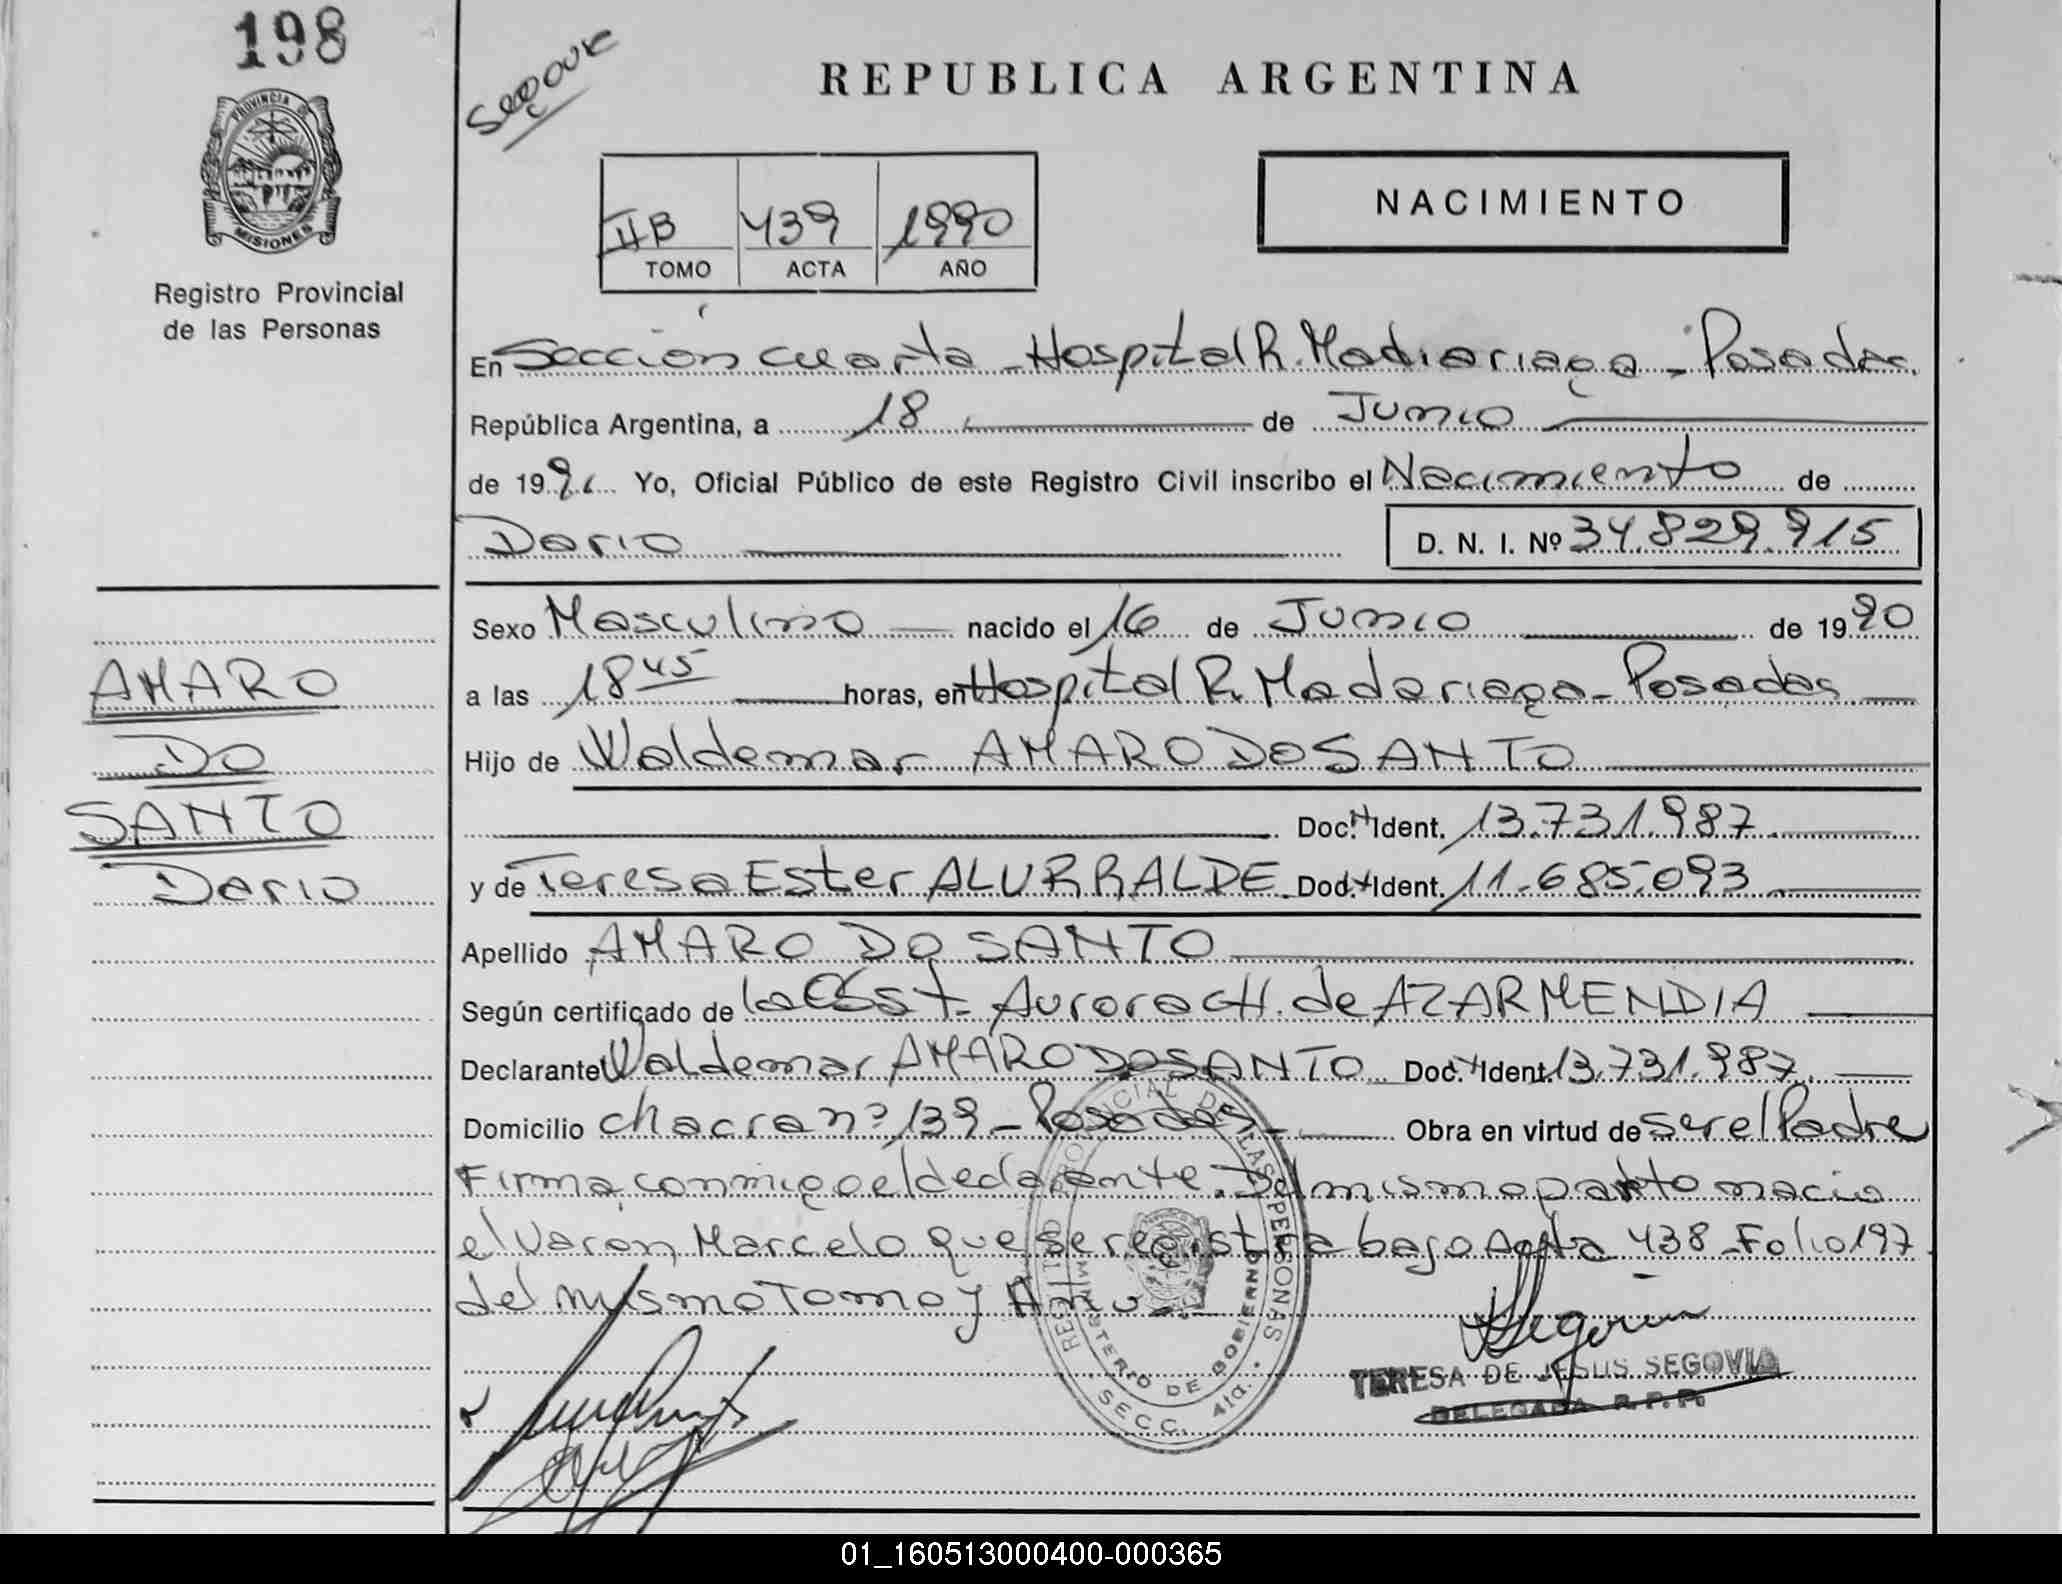 198
PROVINCIA DE
MISIONES
Registro Provincial
de las Personas
REPUBLICA ARGENTINA
NACIMIENTO
IIB 439 1990
TOMO ACTA AÑO
En Sección cuarta - Hospital R. Madiariaga - Posadas.
República Argentina, a 18 de Junio
de 199 Yo, Oficial Público de este Registro Civil inscribo el Nacimiento de
Dario D. N. I. Nº 34.829.915
Sexo Masculino nacido el 16 de Junio de 1990
a las 18 45 horas, en Hospital R. Madariaga - Posadas
Hijo de Waldemar AMARO DO SANTO
Doc. Ident. 13.731.987
y de Teresa Ester ALURRALDE Doc. Ident. 11.685.093
Apellido AMARO DO SANTO
Según certificado de la Obst. Aurora CH. de AZARMENDIA
Declarante Waldemar AMARO DO SANTO Doc. Ident. 13.731.987
Domicilio chacra nº 139 - Posadas - Obra en virtud de ser el Padre
Firma conmigo el declarante. Del mismo parto nacio
el varón, Marcelo que se registra bajo Acta 438 - Folio 197
del mismo Tomo y Año.
AMARO
DO
SANTO
Dario
REGISTRO PROVINCIAL DE LAS PERSONAS
MINISTERIO DE GOBIERNO
SECC. 4ta.
TERESA DE JESUS SEGOVIA
DELEGADA R. P. P.
01_160513000400-000365